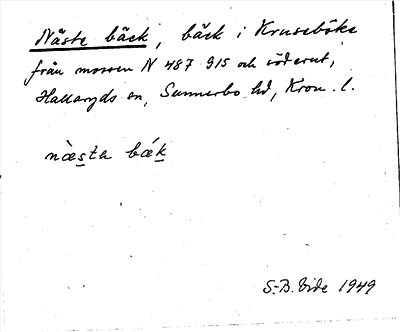 Näste bäck, bäck i Kruseböke
från mossen N 487 915 och söderut,
Hallaryds sn, Sunnerbo hd, Kron. l.
næ̀sta bǽk
S-B. Vide 1949